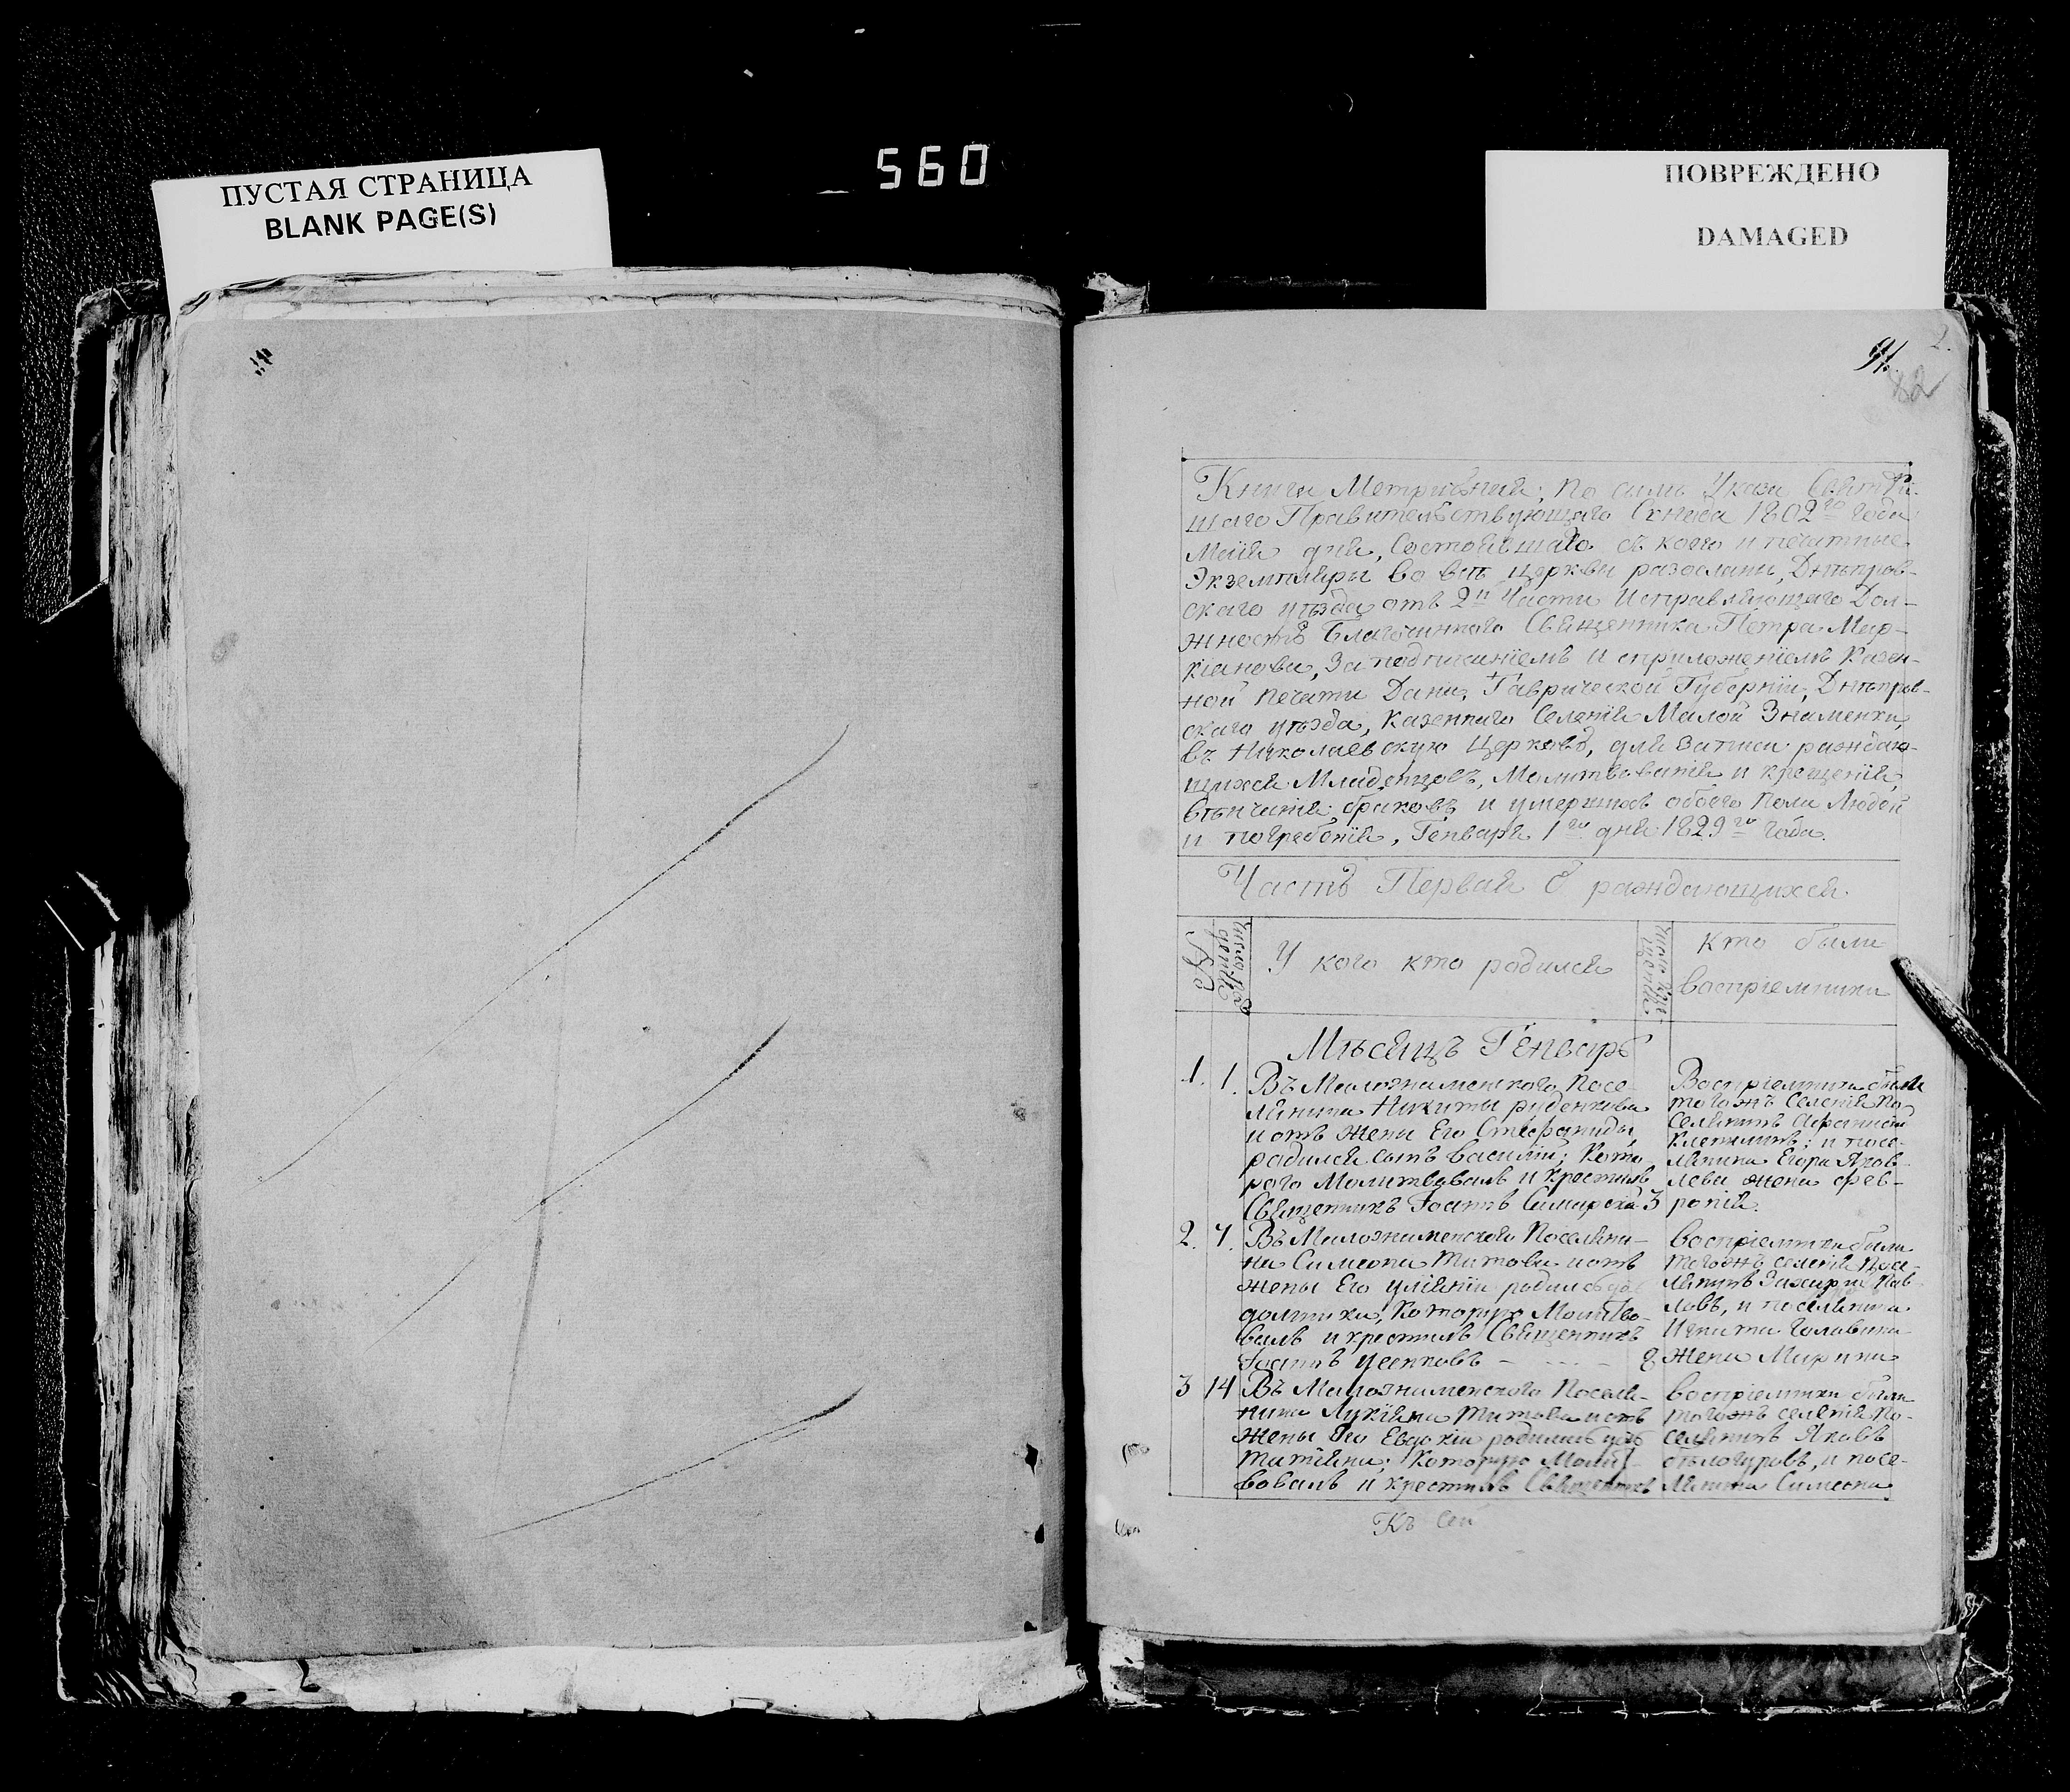 ПУСТАЯ СТРАНИЦА
BLANK PAGE(S)
560
ПОВРЕЖДЕНО
DAMAGED
2.
91.
82
Книга Метричная, по силѣ Указа Святѣй-
шаго Правительствующаго Сѵнода 1802го года
Маія дня, Состоявшагося съ коего и печатные
Экземпляры во всѣ церкви разосланы, Днѣпров-
скаго уѣзда отъ 2й Части Исправляющаго Дол-
жность Благочиннаго Священника Петра Мар-
кіанова, За подписаніемъ и съприложеніемъ Казен-
ной печати Дана, Таврической Губерніи, Днѣпров-
скаго уѣзда, Казеннаго Селенія Малой Знаменки,
въ Николаевскую Церковь, для записи раждаю-
щихся Младенцовъ, Молитвованія и крещенія,
вѣнчанія браковъ и умершихъ обоего пола Людей
и погребенія, Генваря 1го дня 1829го года.
Часть Первая о раждающихся
№
Число рожденія
У кого кто родился
Число крещенія
кто были
воспріемники
Мѣсяцъ Генварь
1. 1. Въ Малознаменскаго Посе-
лянина Никиты руденкова
и отъ жены Его Стефаниды
родился сынъ василій; Кото-
раго Молитвовалъ и Крестилъ
Священникъ Іоаннъ 3
Воспріемники были
тогожъ Селенія По-
Селянинъ
и посе-
лянина Егора Яков-
лева жена Фев-
ронія.
2. 7. Въ Малознаменскаго Поселяни-
на Симеона Титова и отъ
жены Его уліянїи родилась до
Которую Молитво-
валъ и крестилъ Священникъ
Іоаннъ усенковъ - - - - 8
воспріемники были
тогожъ селенія Посе-
лянинъ Захарій Пав-
ловъ, и поселянина
Игната Головина
жена Марина
3 14 Въ Малознаменскаго Поселя-
нина Лукїяна Титова и отъ
жены Его Евдокїи родилась дочь
Татїяна; Которую Молит-
вовалъ и крестилъ Священникъ
воспріемники были
тогожъ селенія По-
селянинъ Яковъ
бѣлогуровъ, и посе-
лянина Симеона
Къ Сей